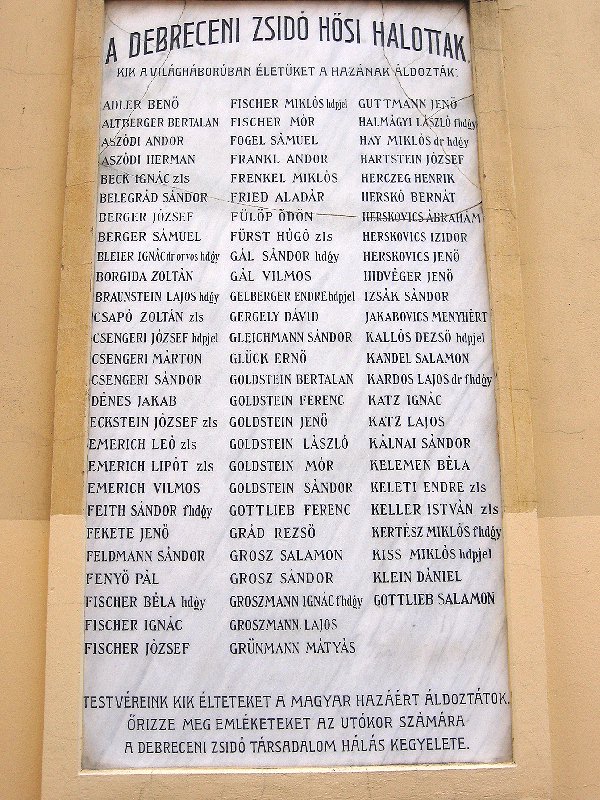 A DEBRECENI ZSIDÓ HŐSI HALOTTAK
KIK A VILÁGHÁBORÚBAN ÉLETÜKET A HAZÁNAK ÁLDOZTÁK:
ADLER BENŐ
ALTBERGER BERTALAN
ASZÓDI ANDOR
ASZÓDI HERMAN
BECK IGNÁC zls
BELEGRÁD SÁNDOR
BERGER JÓZSEF
BERGER SÁMUEL
BLEIER IGNÁC dr orvos hdgy
BORGIDA ZOLTÁN
BRAUNSTEIN LAJOS hdgy
CSAPÓ ZOLTÁN zls
CSENGERI JÓZSEF hdpjel
CSENGERI MÁRTON
CSENGERI SÁNDOR
DÉNES JAKAB
ECKSTEIN JÓZSEF zls
EMERICH LEÓ zls
EMERICH LIPÓT zls
EMERICH VILMOS
FEITH SÁNDOR fhdgy
FEKETE JENŐ
FELDMANN SÁNDOR
FENYŐ PÁL
FISCHER BÉLA hdgy
FISCHER IGNÁC
FISCHER JÓZSEF
FISCHER MIKLÓS hdpjel
FISCHER MÓR
FOGEL SÁMUEL
FRANKL ANDOR
FRENKEL MIKLÓS
FRIED ALADÁR
FÜLÖP ÖDÖN
FÜRST HÚGÓ zls
GÁL SÁNDOR hdgy
GÁL VILMOS
GELBERGER ENDRE hdpjel
GERGELY DÁVID
GLEICHMANN SÁNDOR
GLÜCK ERNŐ
GOLDSTEIN BERTALAN
GOLDSTEIN FERENC
GOLDSTEIN JENŐ
GOLDSTEIN LÁSZLÓ
GOLDSTEIN MÓR
GOLDSTEIN SÁNDOR
GOTTLIEB FERENC
GRÁD REZSŐ
GROSZ SALAMON
GROSZ SÁNDOR
GROSZMANN IGNÁC fhdgy
GROSZMANN LAJOS
GRÜNMANN MÁTYÁS
GUTTMANN JENŐ
HALMÁGYI LÁSZLÓ fhdgy
HAY MIKLÓS dr hdgy
HARTSTEIN JÓZSEF
HERCZEG HENRIK
HERSKÓ BERNÁT
HERSKOVICS ÁBRAHÁM
HERSKOVICS IZIDOR
HERSKOVICS JENŐ
HIDVÉGER JENŐ
IZSÁK SÁNDOR
JAKABOVICS MENYHÉRT
KALLÓS DEZSŐ hdpjel
KANDEL SALAMON
KARDOS LAJOS dr fhdgy
KATZ IGNÁC
KATZ LAJOS
KÁLNAI SÁNDOR
KELEMEN BÉLA
KELETI ENDRE zls
KELLER ISTVÁN zls
KERTÉSZ MIKLÓS fhdgy
KISS MIKLÓS hdpjel
KLEIN DÁNIEL
GOTTLIEB SALAMON
TESTVÉREINK KIK ÉLTETEKET A MAGYAR HAZÁÉRT ÁLDOZTÁTOK.
ŐRIZZE MEG EMLÉKETEKET AZ UTÓKOR SZÁMÁRA
A DEBRECENI ZSIDÓ TÁRSADALOM HÁLÁS KEGYELETE.